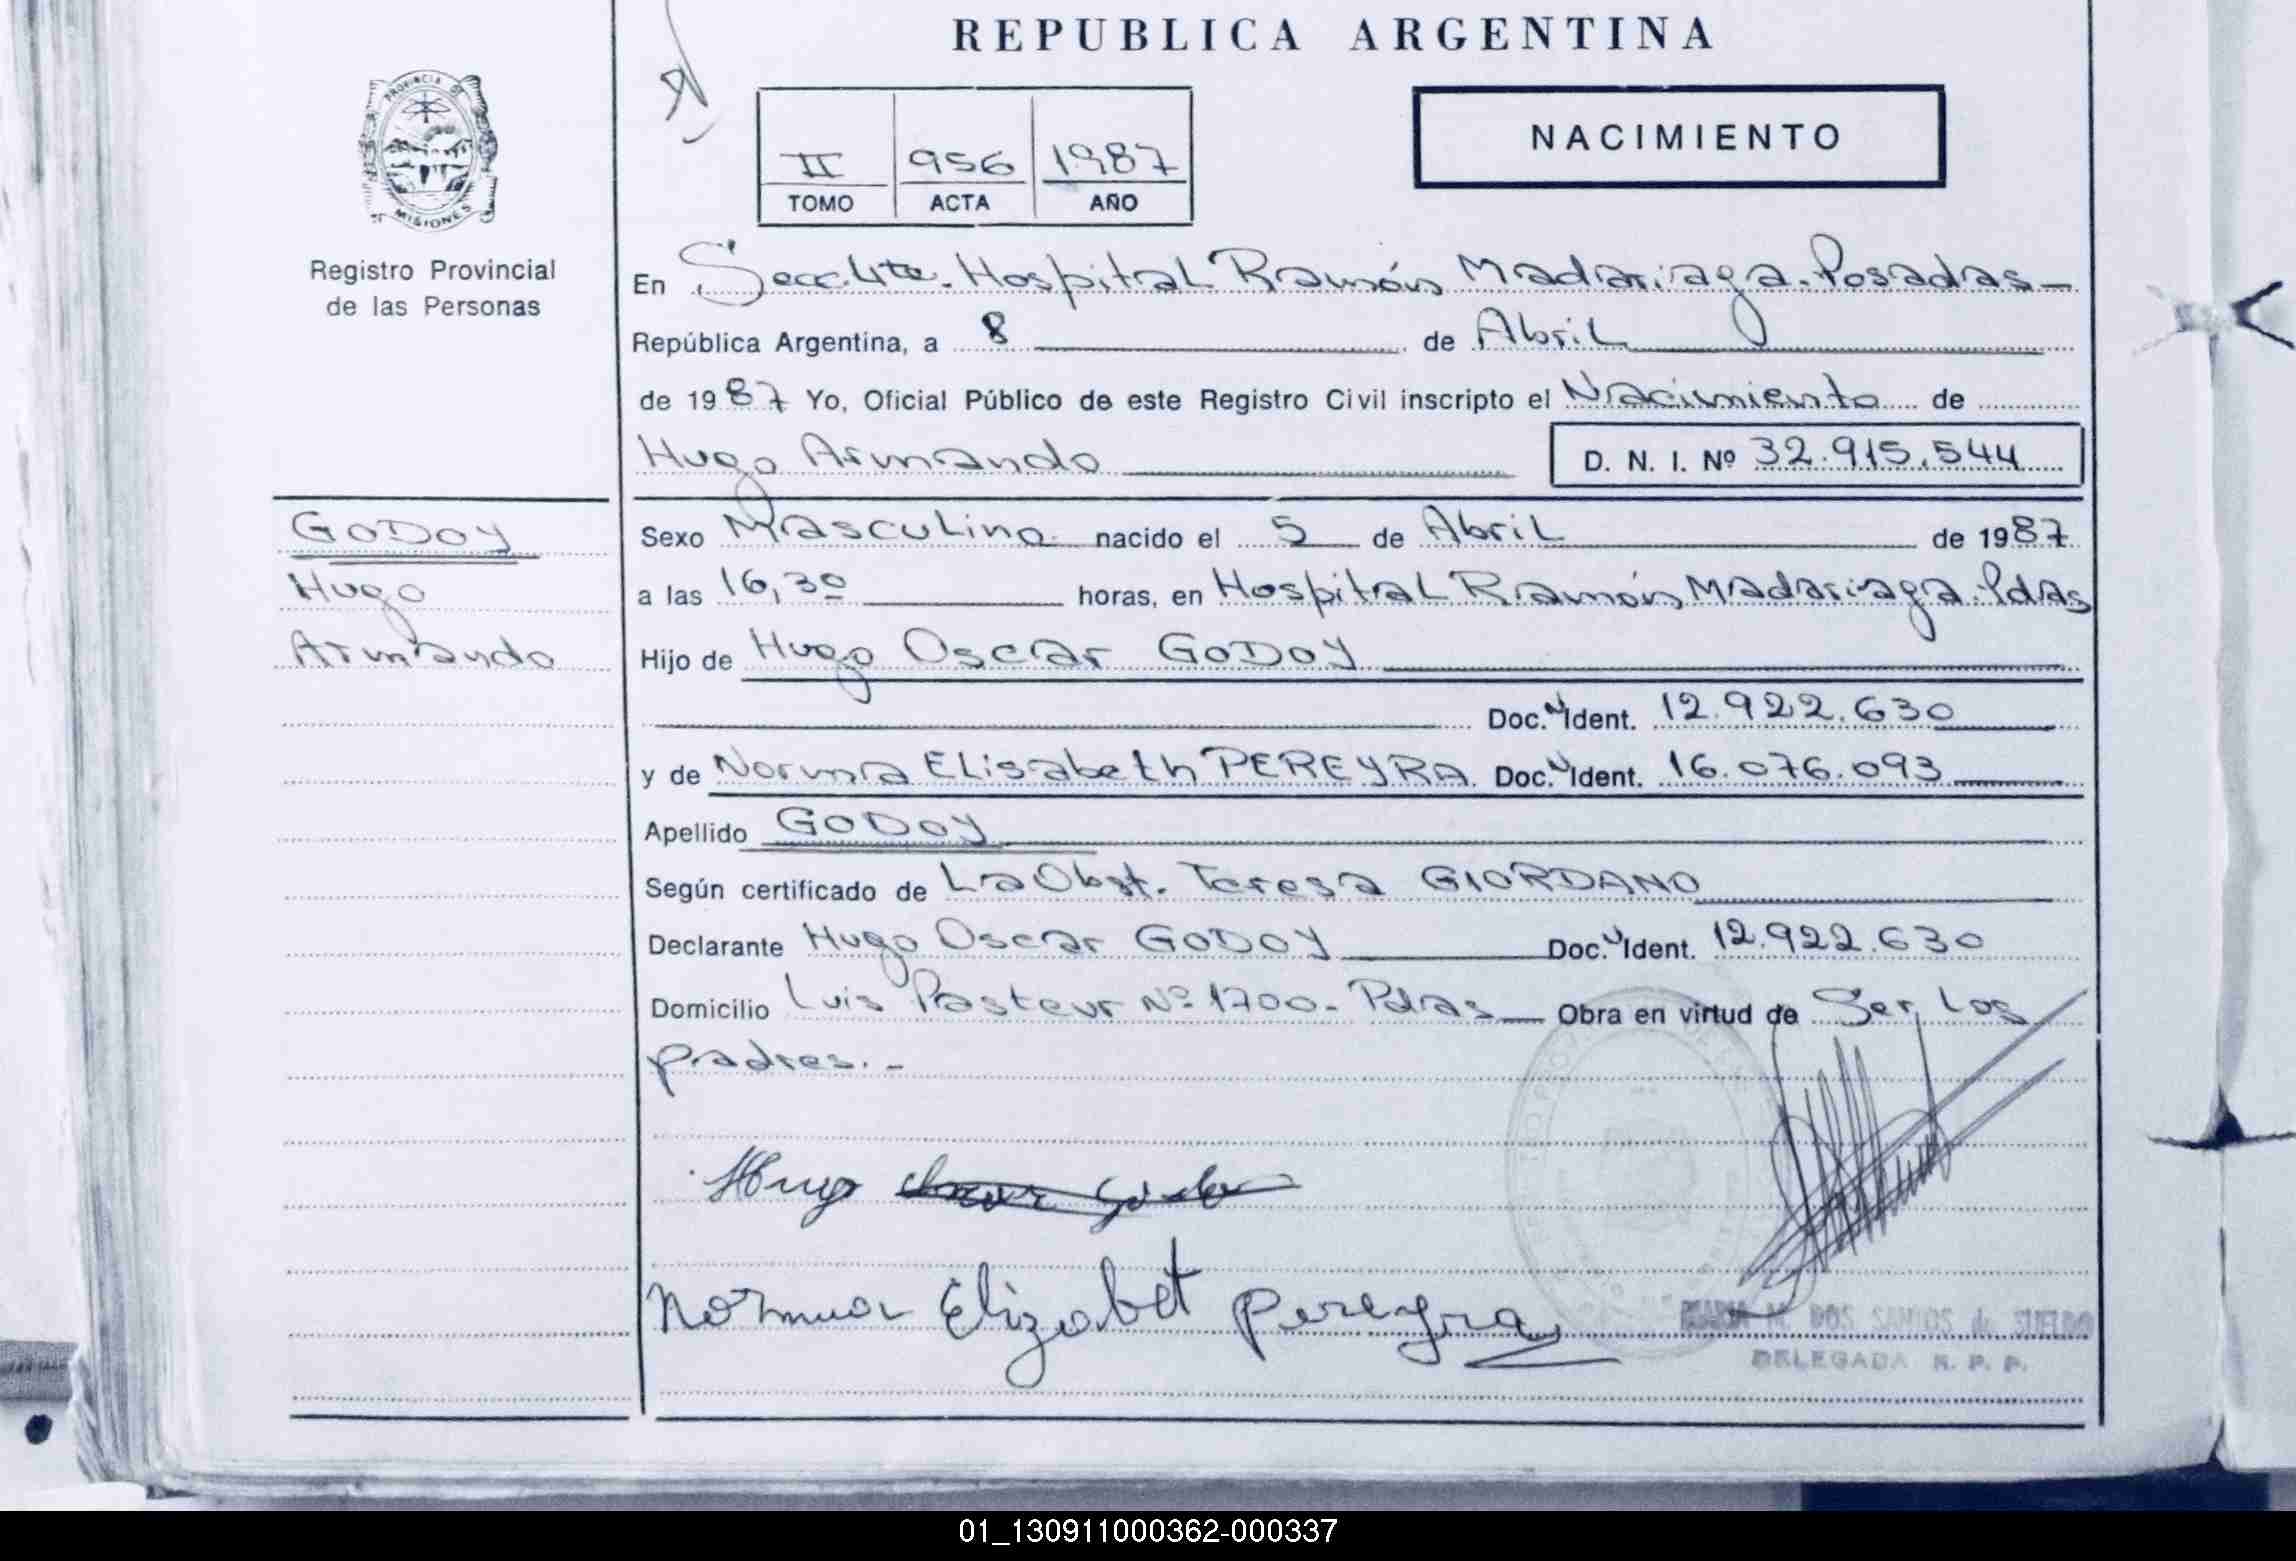 REPUBLICA ARGENTINA
PROVINCIA DE
MISIONES
Registro Provincial
de las Personas
II 956 1987
TOMO ACTA AÑO
NACIMIENTO
En Secc. 4ta. Hospital Ramón Madariaga. Posadas-
República Argentina, a 8 de Abril
de 1987 Yo, Oficial Público de este Registro Civil inscripto el Nacimiento de
Hugo Armando D. N. I. Nº 32.915.544
GODOY
Hugo
Armando
Sexo Masculino nacido el 5 de Abril de 1987
a las 16,30 horas, en Hospital Ramón Madariaga. Pdas
Hijo de Hugo Oscar GODOY
Doc. Ident. 12.922.630
y de Norma Elisabeth PEREYRA. Doc. Ident. 16.076.093
Apellido GODOY
Según certificado de La Obst. Teresa GIORDANO
Declarante Hugo Oscar GODOY Doc. Ident. 12.922.630
Domicilio Luis Pasteur Nº 1700- Pdas Obra en virtud de Ser los
padres.-
Hugo Oscar Godoy
Norma Elizabet Pereyra
MARIA M. DOS SANTOS de SUELDO
DELEGADA R. P. P.
01_130911000362-000337